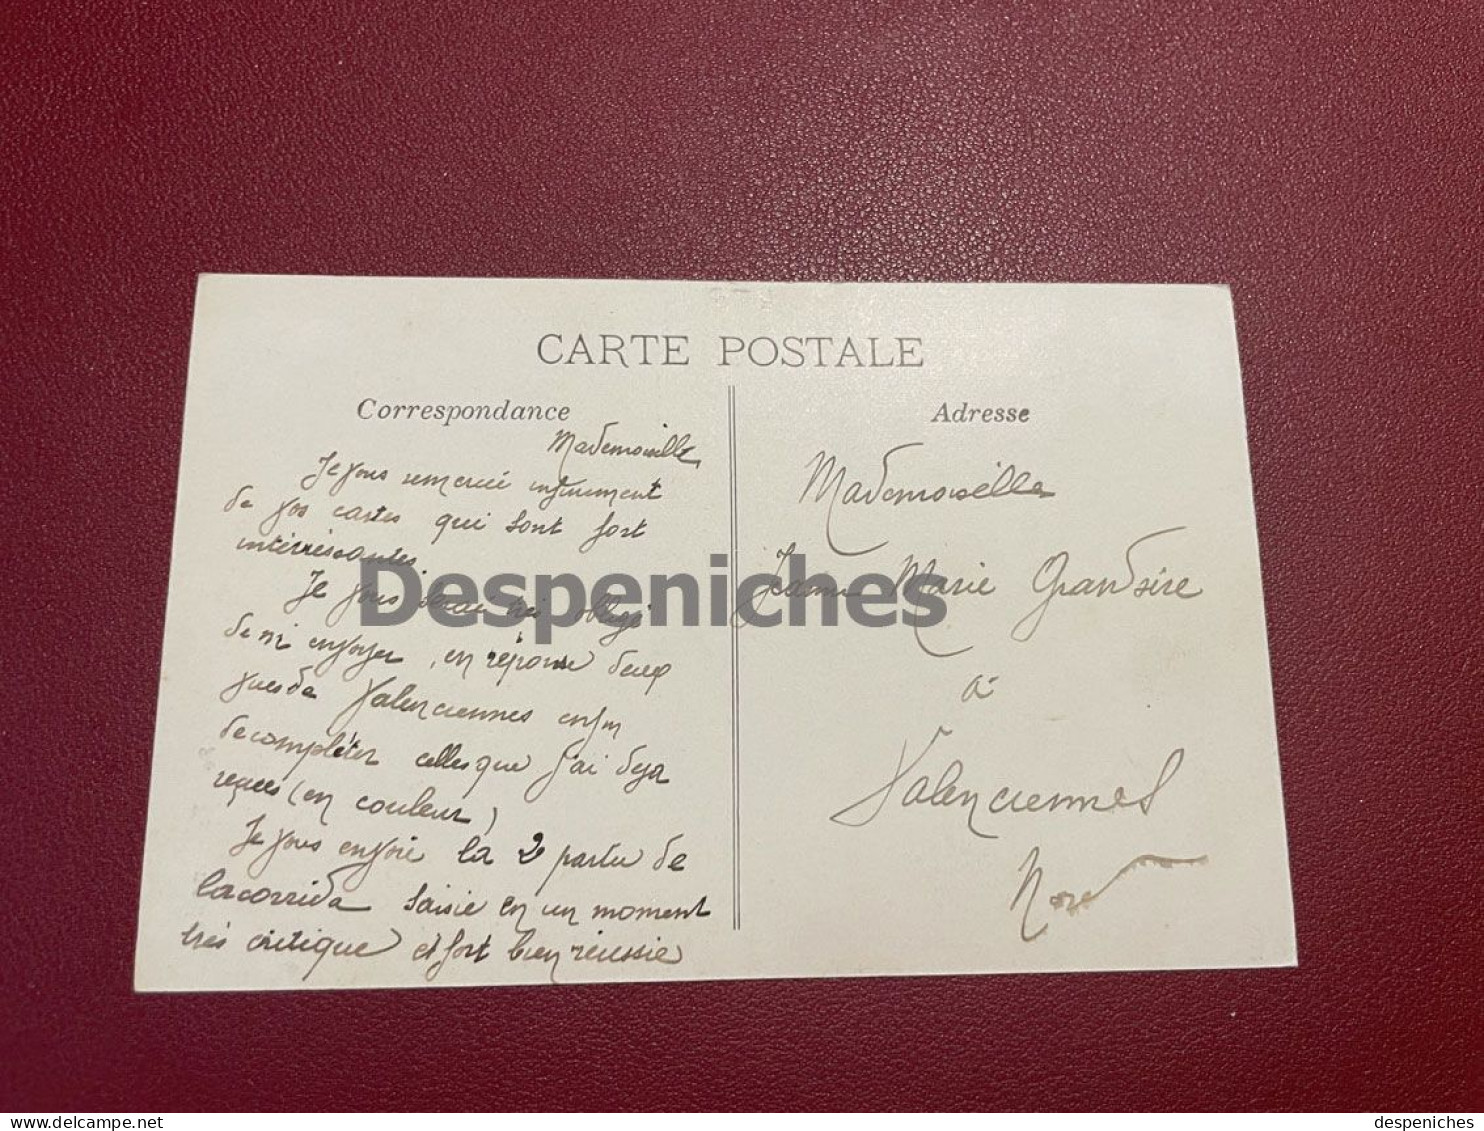 CARTE POSTALE
Correspondance
Mademoiselle
Je vous remercie infiniment
de vos cartes qui sont fort
intérréssantes.
Je vous serai très obligé
de m'envoyer, en réponse deux
vues de Valenciennes enfin
de compléter celles que j'ai deja
reçues (en couleur)
Je vous envoie la 2e partie de
la corrida saisie en un moment
très critique et fort bien réussie
Adresse
Mademoiselle
Jeanne Marie Grandsire
à
Valenciennes
Nord
Despeniches
delcampe.net
despeniches